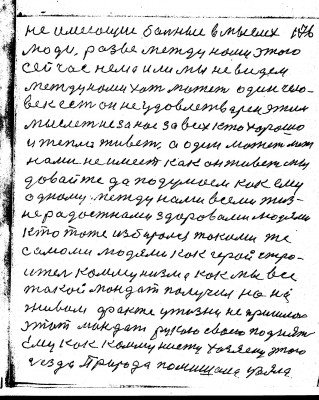 не имеющие больные в мыслях 176
люди, разве между нами этого
сейчас нема или мы не видем
между нами хот может один чело-
век сест он не удовлетварен этим
мыслет не за нас за всех кто хорошо
и тепло живет, а один может меж
нами не имеет как он живет мы
довайте да подумаем как ему
одному между нами всеми жиз-
нерадостнами здоровами людями
кто тоже избирался такоми же
самоми людями как герой стро-
ител коммунизма как мы все
такой мандат получил но на
живом факте у жизни не пришлос
этот мандат рукою своею поднять
ему как коммунисту хозяену этого
сезда Природа помешала взяла